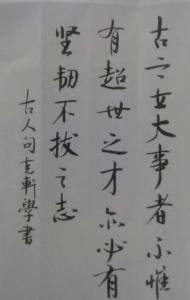 古之立大事者不惟
有超世之才亦必有
坚韧不拔之志
古人句克軒學書